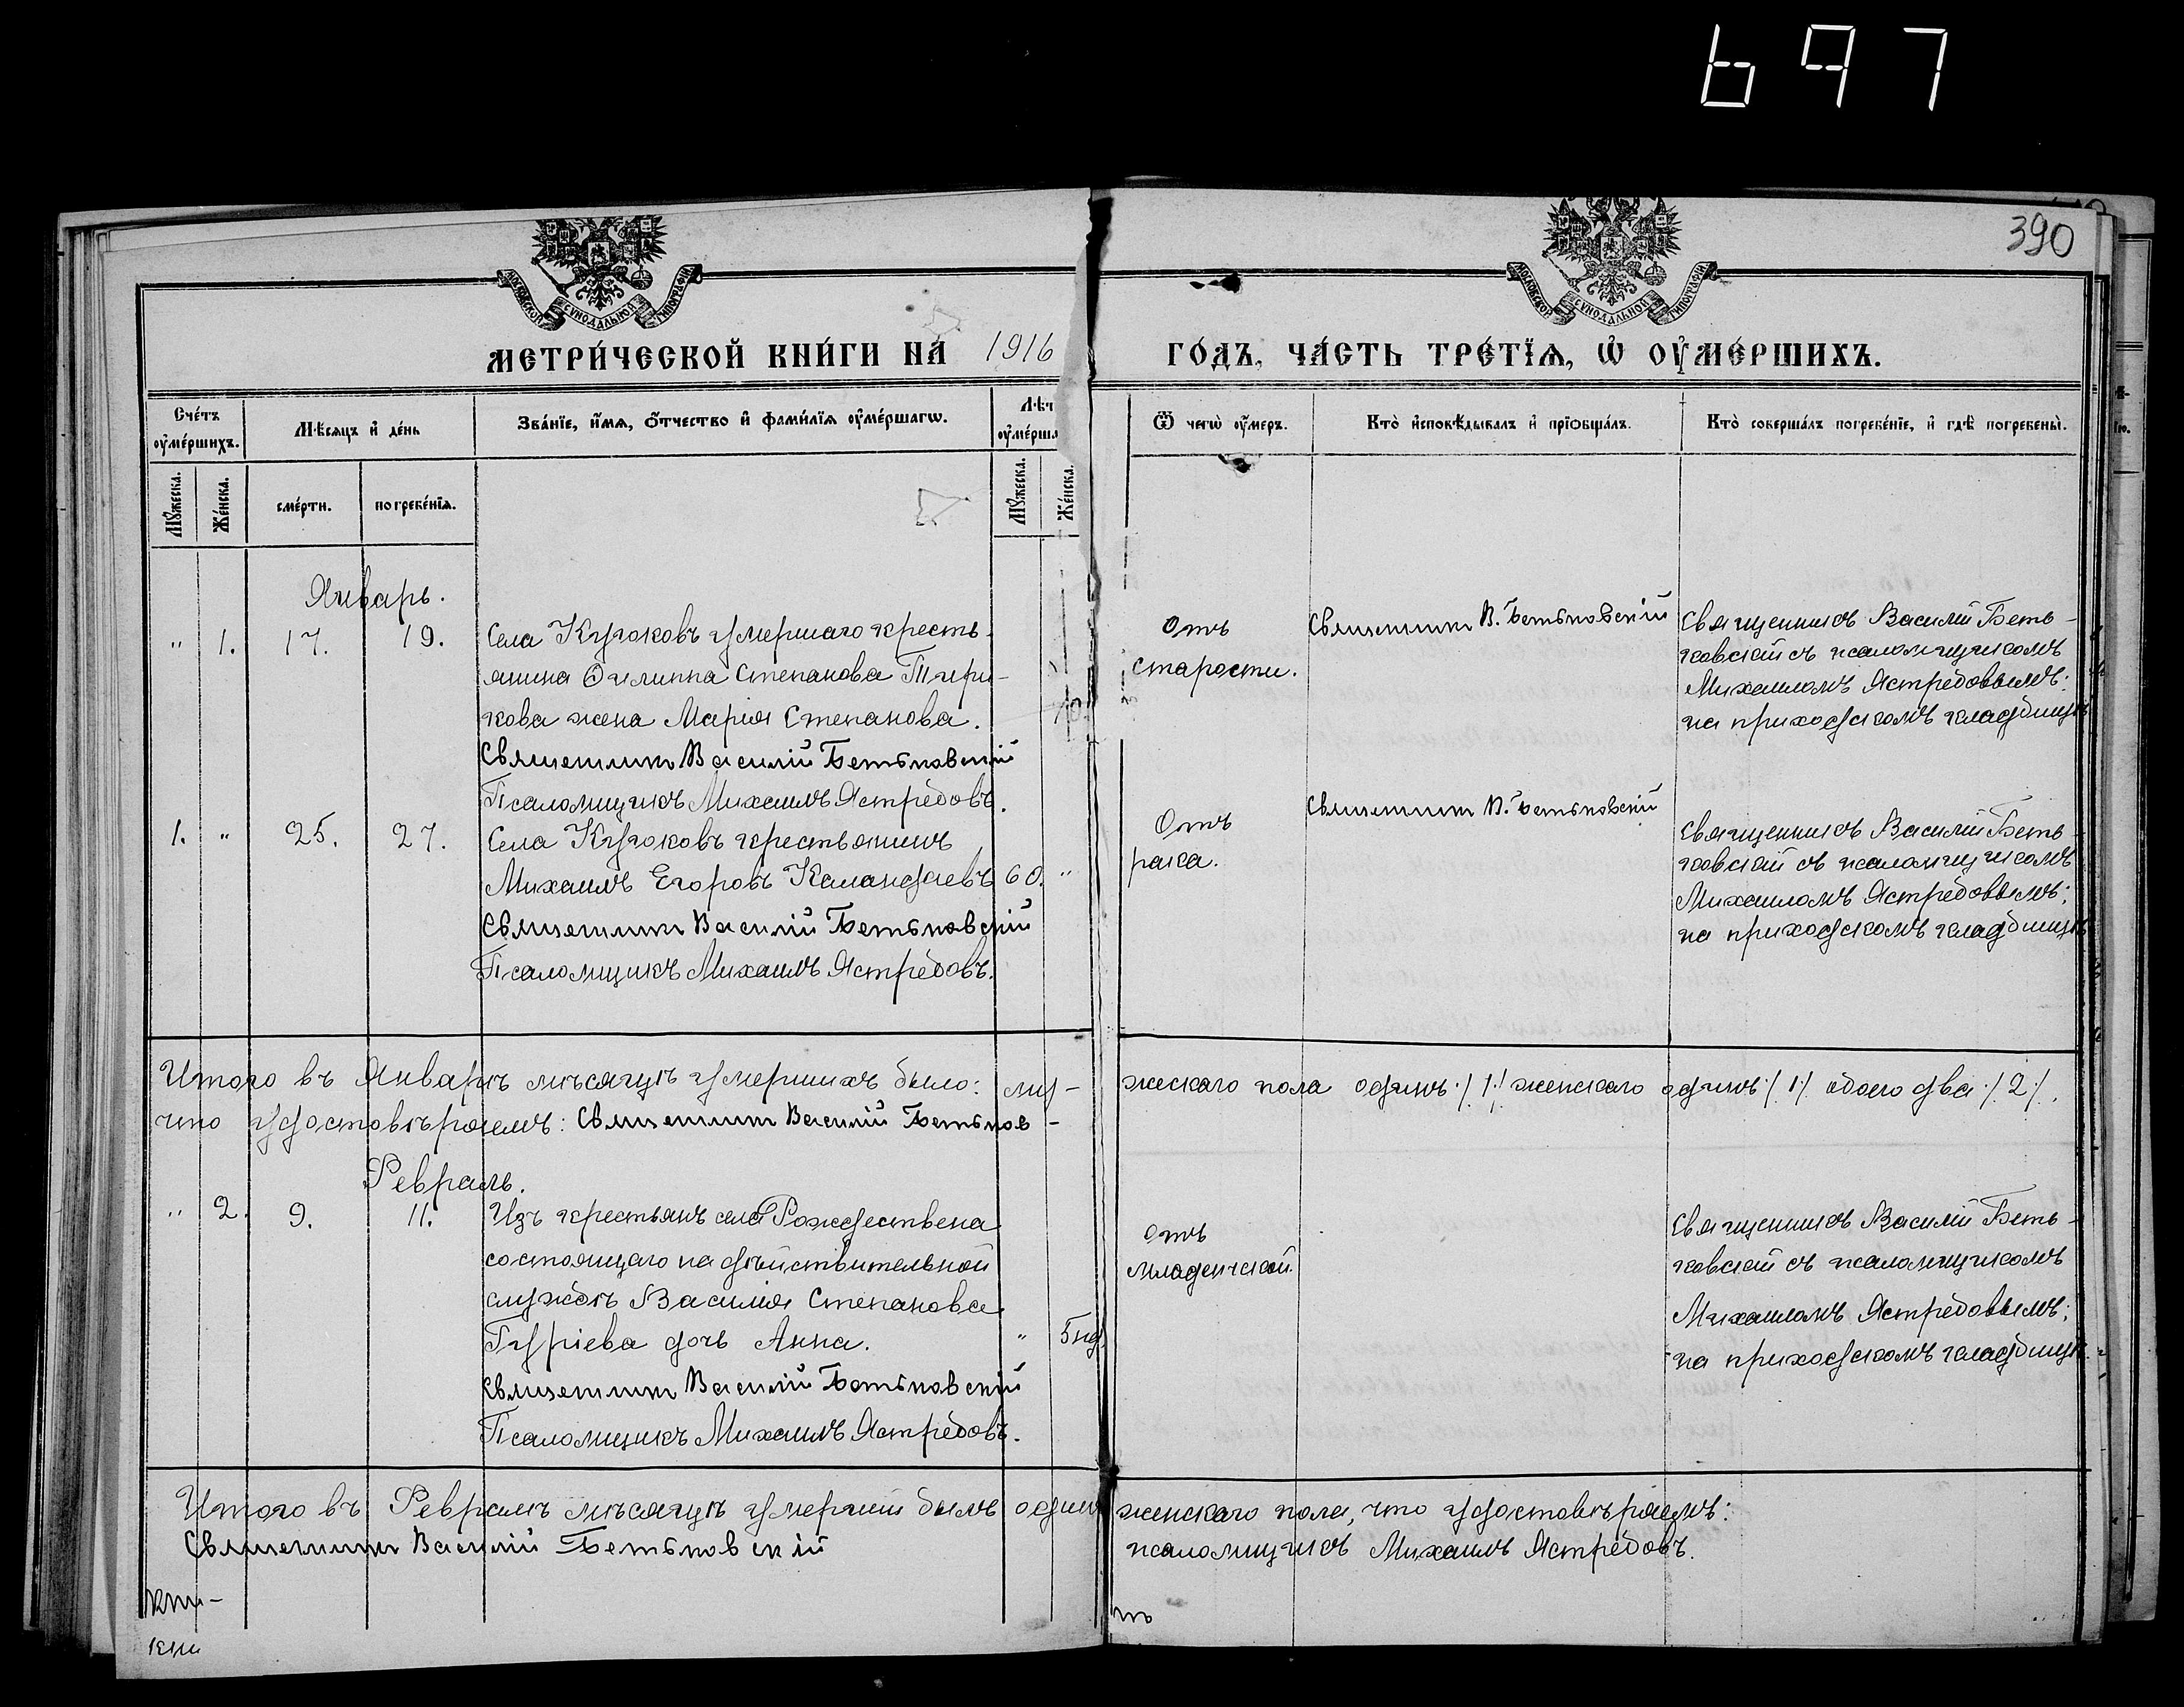 697
390
МОСКОВСКОЙ СУНОДАЛЬНОЙ ТИПОГРАФІИ
МОСКОВСКОЙ СУНОДАЛЬНОЙ ТИПОГРАФІИ
МЕТРИ́ЧЕСКОЙ КНИ́ГИ НА́ 1916 ГО́ДЪ, ЧА́СТЬ ТРЕ́ТЇѦ, Ѡ҆ ОУ҆МЕ́РШИХЪ.
Сче́тъ оу҆ме́ршихъ.
Мѣ́сяцъ и҆ де́нь
Зва́нїе, и҆́мѧ, ѻ҆́тчество и҆ фами́лїѧ оу҆ме́ршагѡ.
Лѣт
оу҆ме́рша
Ѿ чегѡ̀ оу҆́меръ.
Кто̀ и҆сповѣ́дывалъ и҆ прїѡбща́лъ.
Кто̀ соверша́лъ погребе́нїе, и҆ гдѣ̀ погребены̀.
Мꙋ́жеска.
Же́нска.
сме́рти.
погребе́нїѧ.
Мꙋ́жеска.
Же́нска.
Январь.
" 1. 17. 19. Села Кутоковъ умершаго кресть-
янина Филиппа Степанова
кова жена Марія Степанова.
Священникъ Василій Бетьковскій
Псаломщикъ Михаилъ Ястребовъ.
Отъ
старости.
Священникъ В. Бетьковскій
Священникъ Василій Беть-
ковскій съ псаломщикомъ
Михаиломъ Ястребовымъ;
на приходскомъ кладбищѣ
1. " 25. 27. Села Кутоковъ крестьянинъ
Михаилъ Егоровъ Каландаевъ 60. "
Священникъ Василій Бетьковскій
Псаломщикъ Михаилъ Ястребовъ.
Отъ
рака.
Священникъ В. Бетьковскій
Священникъ Василій Беть-
ковскій съ псаломщикомъ
Михаиломъ Ястребовымъ;
на приходскомъ кладбищѣ
Итого въ Январѣ мѣсяцѣ умершихъ было: му-
жескаго пола одинъ ./.1./. женскаго одинъ ./.1./. обоего два ./.2./.
что удостовѣряемъ: Священникъ Василій Бетьков-
Февраль.
" 2. 9. 11. Изъ крестьянъ села Рождествена
состоящаго на дѣйствительной
службѣ Василія Степанова
Гуріева дочь Анна. " 5 нд.
Священникъ Василій Бетьковскій
Псаломщикъ Михаилъ Ястребовъ.
отъ
младенческой.
Священникъ Василій Беть-
ковскій съ псаломщикомъ
Михаиломъ Ястребовымъ;
на приходскомъ кладбищѣ.
Итого въ Февралѣ мѣсяцѣ умершій былъ одинъ женскаго пола, что удостовѣряемъ:
Священникъ Василій Бетьковскій
псаломщикъ Михаилъ Ястребовъ.